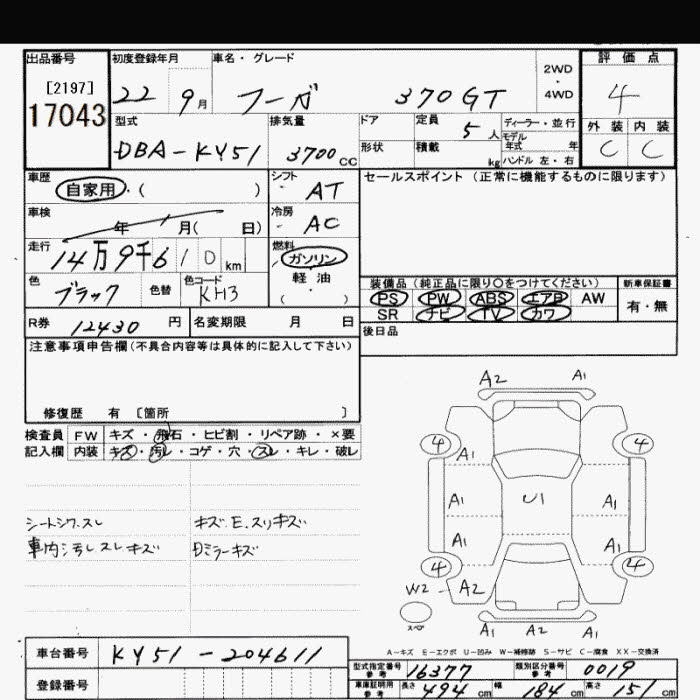 出品番号 初度登録年月 車名・グレード 2WD・4WD 評価点
[2197] 17043 22 9月 フーガ 370GT 4
型式 排気量 ドア 定員 5人 ディーラー・並行 外装 内装
DBA-KY51 3700cc 形状 積載 kg モデル年式 年 ハンドル 左・右 C C
車歴 自家用・( ) シフト AT セールスポイント(正常に機能するものに限ります)
車検 年 月( 日) 冷房 AC
走行 14万9千610km 燃料 ガソリン
軽油
( )
色 ブラック 色替 色コード KH3
装備品(純正品に限り○をつけてください) 新車保証書
PS PW ABS エアB AW 有・無
SR ナビ TV カワ
R券 12430円 名変期限 月 日 後日品
注意事項申告欄(不具合内容等は具体的に記入して下さい)
修復歴 有 [箇所 ]
検査員 FW キズ・飛石・ヒビ割・リペア跡・×要
記入欄 内装 キズ・汚レ・コゲ・穴・スレ・キレ・破レ
シートシワ.スレ キズ.E.スリキズ
車内汚レスレキズ Dミラーキズ
A2 A1
4 A1 4
A1 U1 A1
A1 A1
4 4
W2 A2
スペア
A1 A1 A2
A-キズ E-エクボ U-凹み W-補修跡 S-サビ C-腐食 XX-交換済
車台番号 KY51-204611
登録番号
型式指定番号 参考 16377 類別区分番号 参考 0019
車庫証明用 参考 長さ 494cm 幅 184cm 高さ 151cm